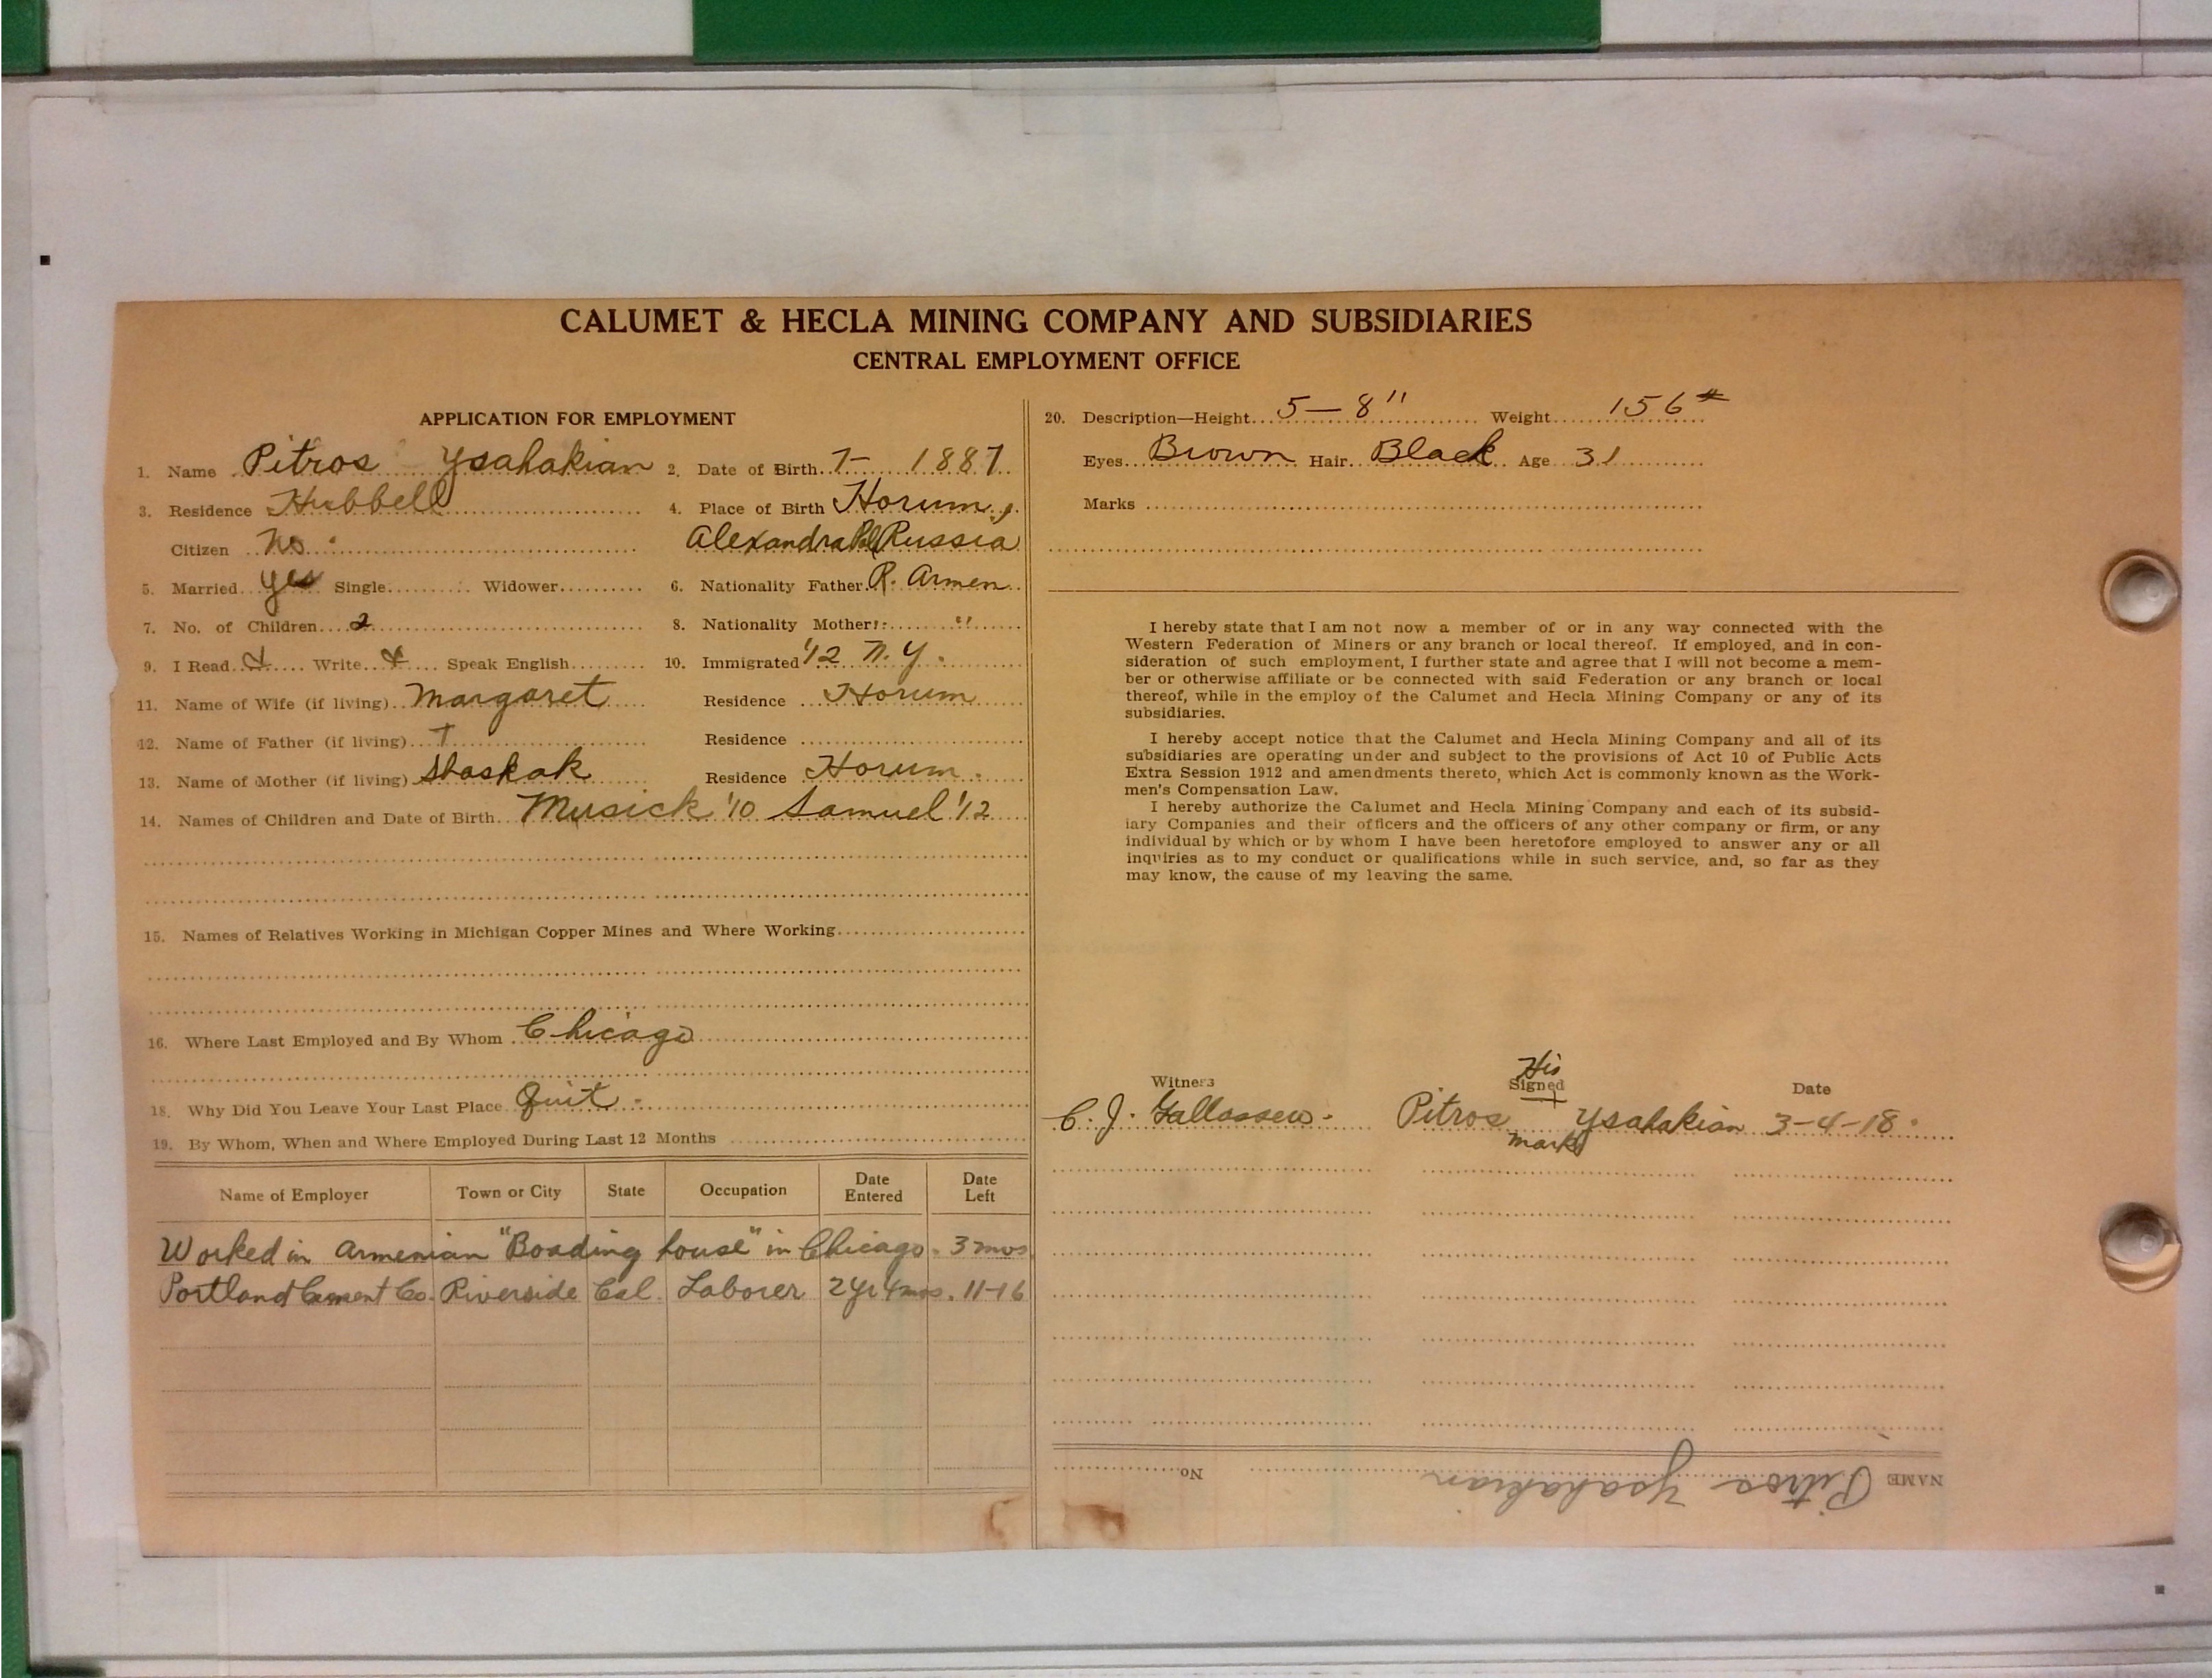 CALUMET & HECLA MINING COMPANY AND SUBSIDIARIES
CENTRAL EMPLOYMENT OFFICE
APPLICATION FOR EMPLOYMENT
1. Name Pitros Ysahakian 2. Date of Birth 7- 1887
3. Residence Hubbell 4. Place of Birth Horum,
Citizen No. Alexandrapol Russia
5. Married yes Single Widower 6. Nationality Father R. Armen
7. No. of Children 2 8. Nationality Mother " "
9. I Read Write Speak English 10. Immigrated '12 N.Y.
11. Name of Wife (if living) Margaret Residence Horum
12. Name of Father (if living) † Residence
13. Name of Mother (if living) Residence Horum.
14. Names of Children and Date of Birth Musick '10 Samuel '12
15. Names of Relatives Working in Michigan Copper Mines and Where Working
16. Where Last Employed and By Whom Chicago
18. Why Did You Leave Your Last Place Quit.
19. By Whom, When and Where Employed During Last 12 Months
Name of Employer Town or City State Occupation Date Entered Date Left
Worked in Armenian "Boading house" in Chicago. 3 mos
Portland Cement Co. Riverside Cal. Laborer 2yr 4mos. 11-16
20. Description—Height 5-8" Weight 156#
Eyes Brown Hair Black Age 31
Marks
I hereby state that I am not now a member of or in any way connected with the
Western Federation of Miners or any branch or local thereof. If employed, and in con-
sideration of such employment, I further state and agree that I will not become a mem-
ber or otherwise affiliate or be connected with said Federation or any branch or local
thereof, while in the employ of the Calumet and Hecla Mining Company or any of its
subsidiaries.
I hereby accept notice that the Calumet and Hecla Mining Company and all of its
subsidiaries are operating under and subject to the provisions of Act 10 of Public Acts
Extra Session 1912 and amendments thereto, which Act is commonly known as the Work-
men's Compensation Law.
I hereby authorize the Calumet and Hecla Mining Company and each of its subsid-
iary Companies and their officers and the officers of any other company or firm, or any
individual by which or by whom I have been heretofore employed to answer any or all
inquiries as to my conduct or qualifications while in such service, and, so far as they
may know, the cause of my leaving the same.
His
Witness Signed Date
C. J. Pitros + Ysahakian 3-4-18.
mark
NAME Pitros Ysahakian No.